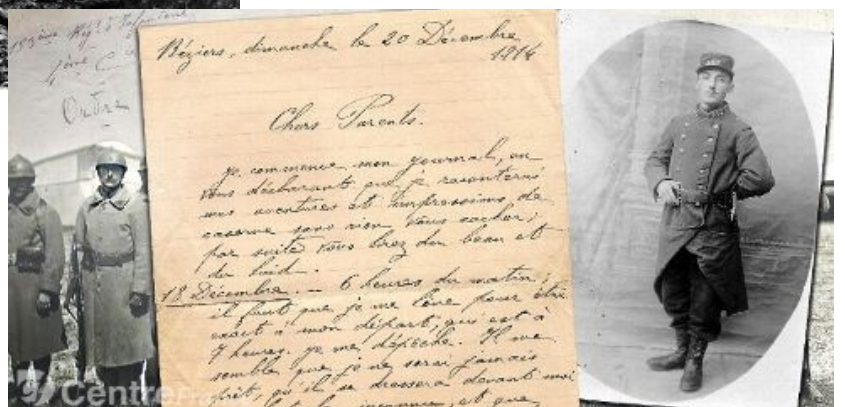 Régt d'Infanterie
Ordre
Béziers, dimanche le 20 Décembre
1914
Chers Parents.
je commence mon journal, en
vous déclarant que je raconterai
mes aventures et impressions de
caserne sans rien vous cacher;
par suite vous lirez du beau et
du laid.
18 Décembre. — 6 heures du matin;
il faut que je me lève pour être
exact à mon départ, qui est à
7 heures. je me dépêche. Il me
semble que je ne serai jamais
prêt, qu'il se dressera devant moi
et que
Centre